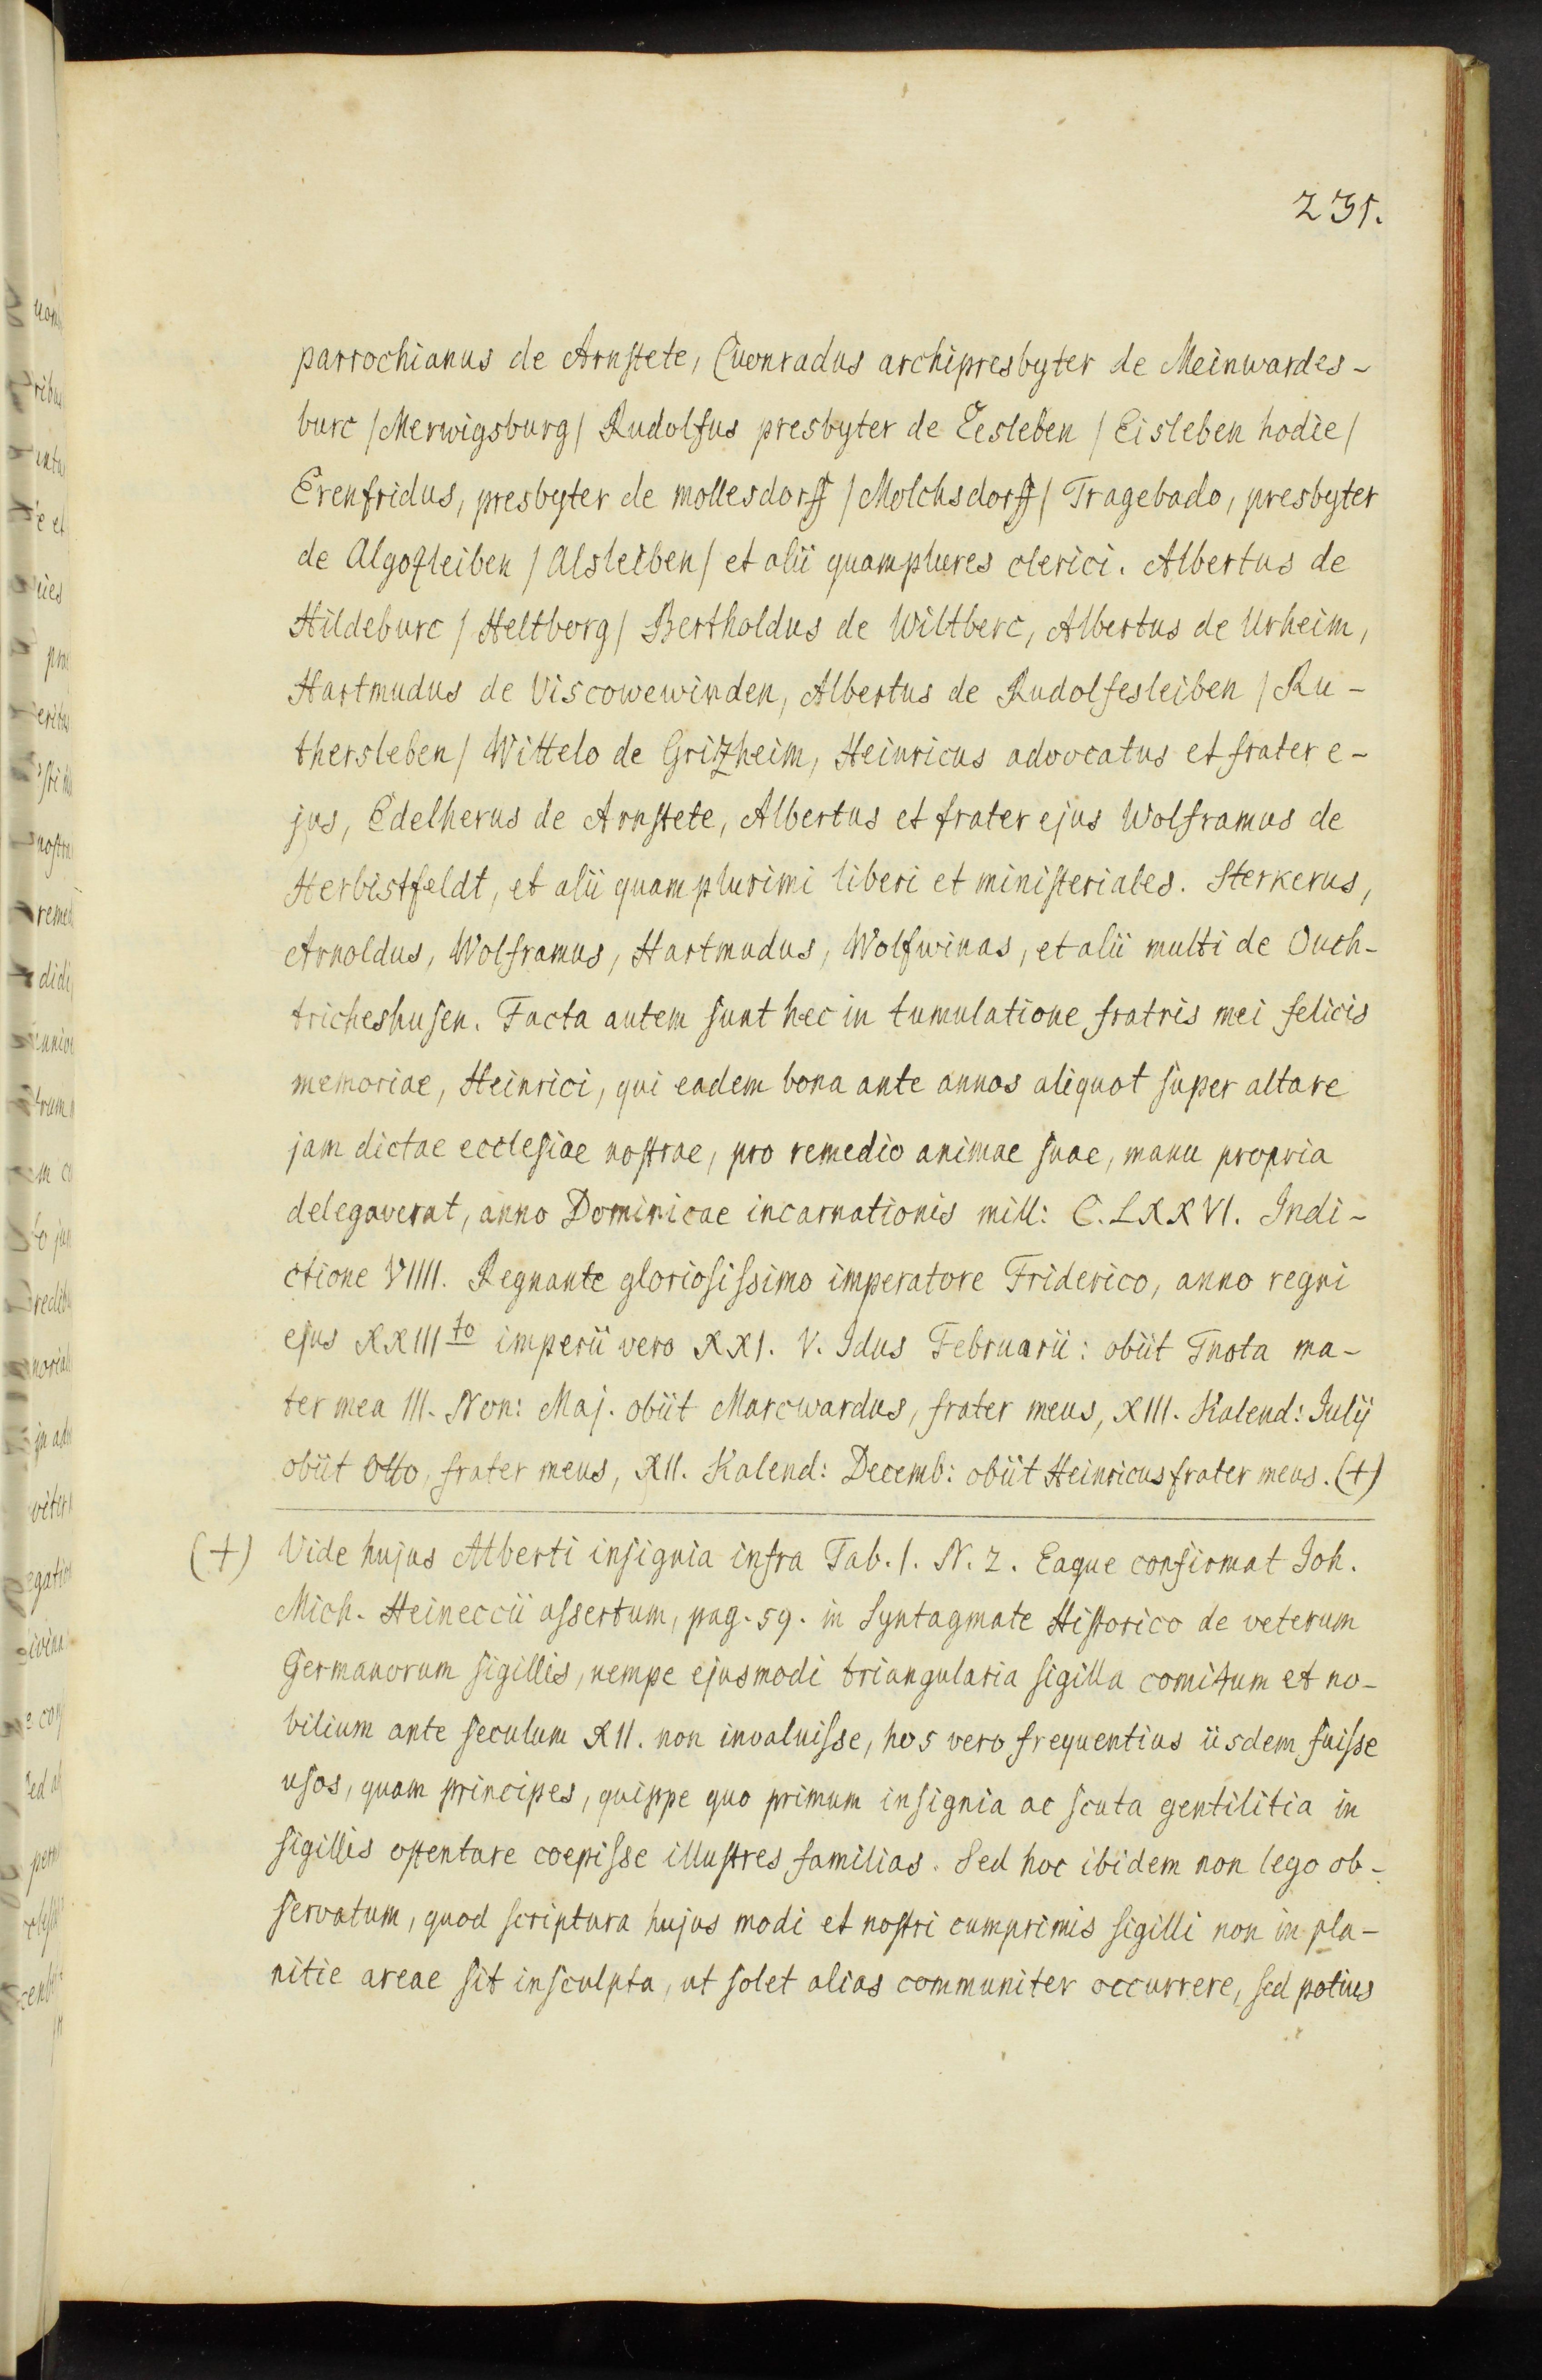 231.
parrochianus de Arnstete, Cuonradus archipresbyter de Meinwardes-
burc /Merwigsburg/ Rudolfus presbyter de Eesleben /Eisleben hodie/
Erenfridus, presbyter de mollesdorff /Molchsdorff/ Tragebado, presbyter
de Algozleiben /Alsleiben/ et alii quamplures clerici. Albertus de
Hildeburc /Heltborg/ Bertholdus de Wiltberc, Albertus de Urheim,
Hartmudus de Viscowewinden, Albertus de Rudolfesleiben /Ru-
thersleben/ Wittelo de Gritzheim, Heinricus advocatus et frater e-
jus, Edelherus de Arnstete, Albertus et frater ejus Wolframus de
Herbistfeldt, et alii quamplurimi liberi et ministeriales. Sterkerus,
Arnoldus, Wolframus, Hartmudus, Wolfwinas, et alii multi de Ouch-
tricheshusen. Facta autem sunt hec in tumulatione fratris mei felicis
memoriae, Heinrici, qui eadem bona ante annos aliquot super altare
jam dictae ecclesiae nostrae, pro remedio animae suae, manu propria
delegaverat, anno Dominicae incarnationis mill: C. LXXVI. Indi-
ctione VIIII. Regnante gloriosissimo imperatore Friderico, anno regni
ejus XXIII to imperii vero XXI. V. Idus Februarii: obiit Tuota ma-
ter mea III. Non: Maj. obiit Marcwardus, frater meus, XIII. Kalend: Iulij
obiit Otto, frater meus, XII. Kalend: Decemb: obiit Heinricus frater meus. (+)
(+) Vide hujus Alberti insignia infra Tab. 1. N. 2. Eaque confirmat Joh.
Mich. Heineccii assertum, pag. 59. in Syntagmate Historico de veterum
Germanorum sigillis, nempe ejusmodi triangularia sigilla comitum et no-
bilium ante seculum XII. non invaluisse, hos vero frequentius iisdem fuisse
usos, quam principes, quippe quo primum insignia ac scuta gentilitia in
sigillis ostentare coepisse illustres familias. Sed hoc ibidem non lego ob-
servatum, quod scriptura hujus modi et nostri cumprimis sigilli non in pla-
nitie areae sit insculpta, ut solet alias communiter occurrere, sed potius